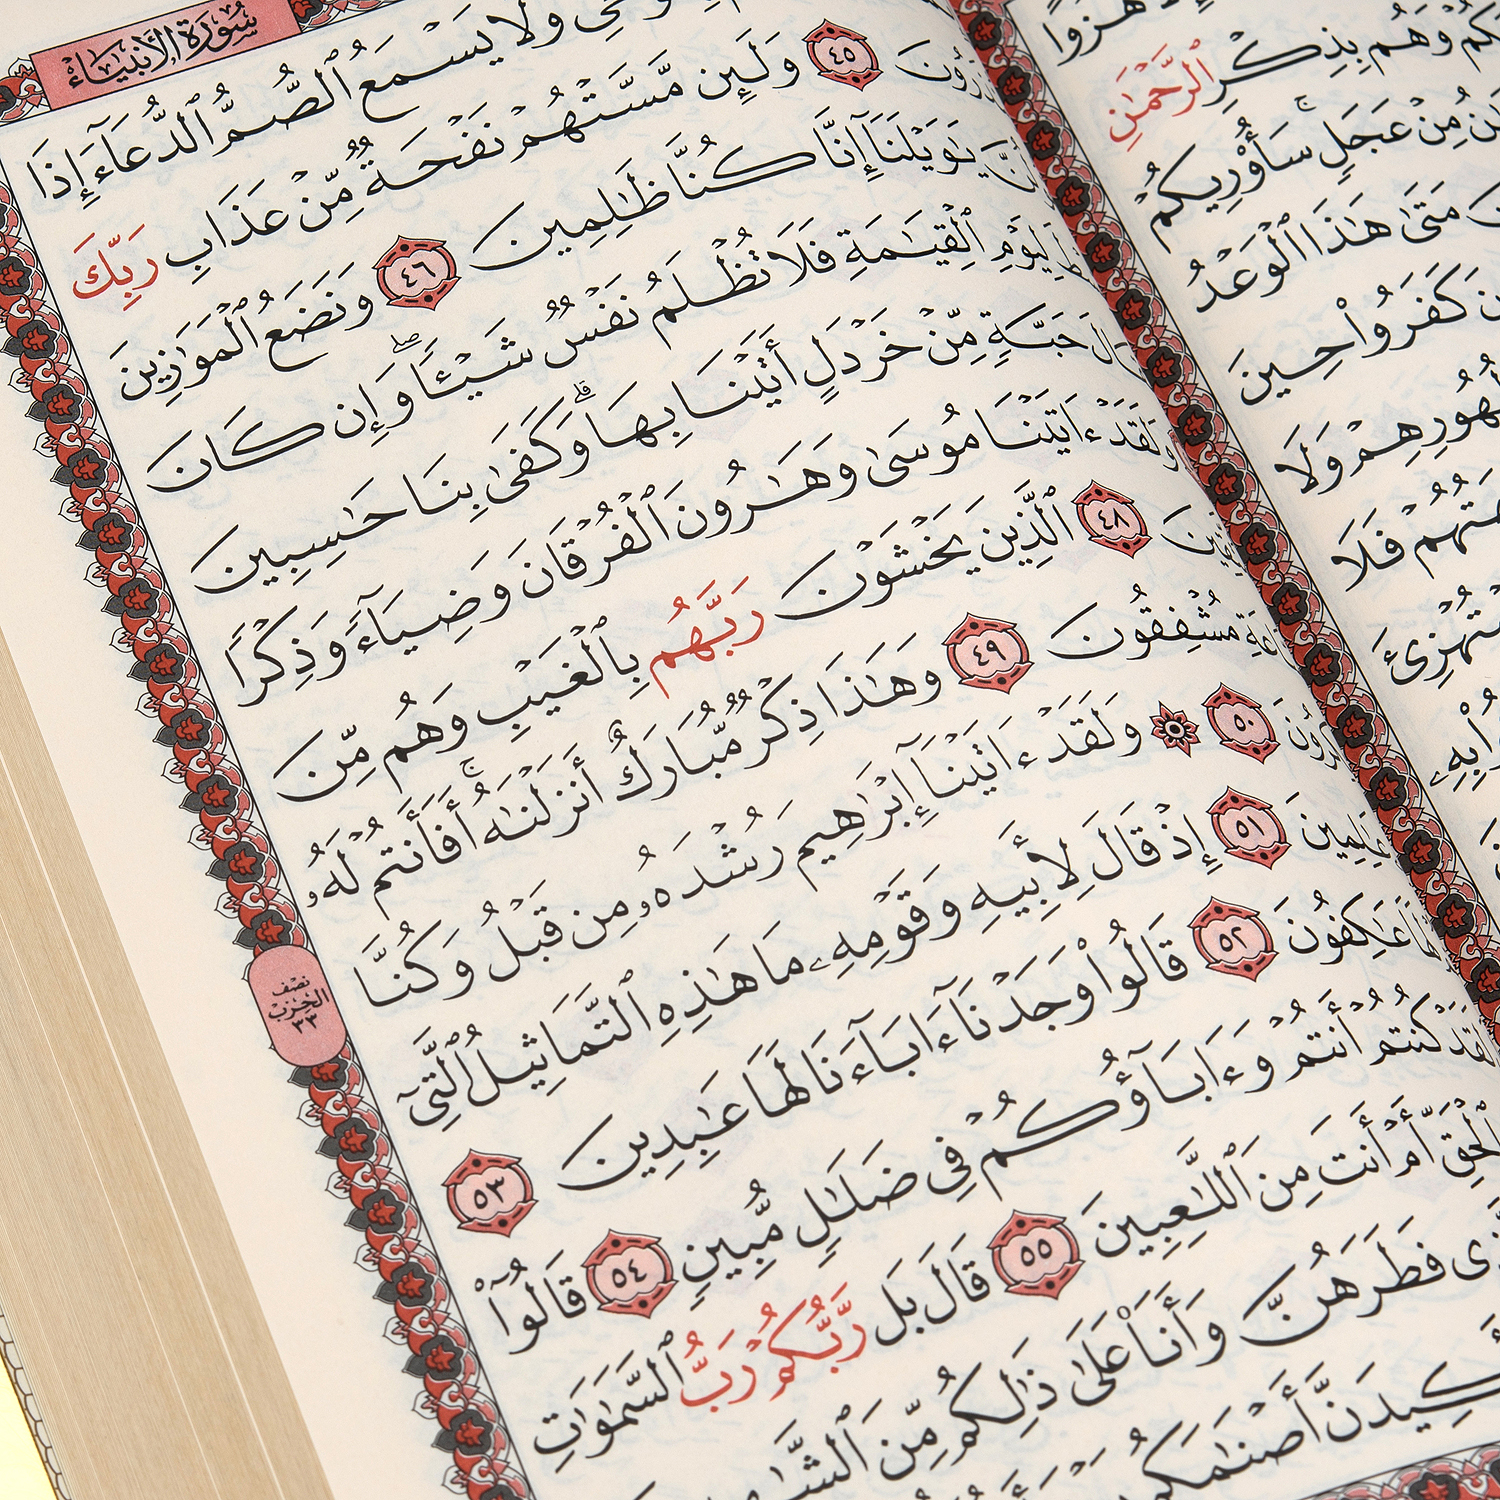 سُورَةُ الأَنبِيَاءِ
وَلَا يَسْمَعُ ٱلصُّمُّ ٱلدُّعَآءَ إِذَا
٤٥ وَلَئِن مَّسَّتْهُمْ نَفْحَةٌ مِّنْ عَذَابِ رَبِّكَ
يَٰوَيْلَنَآ إِنَّا كُنَّا ظَٰلِمِينَ ٤٦ وَنَضَعُ ٱلْمَوَٰزِينَ
لِيَوْمِ ٱلْقِيَٰمَةِ فَلَا تُظْلَمُ نَفْسٌ شَيْـًٔا ۖ وَإِن كَانَ
حَبَّةٍ مِّنْ خَرْدَلٍ أَتَيْنَا بِهَا ۗ وَكَفَىٰ بِنَا حَٰسِبِينَ
وَلَقَدْ ءَاتَيْنَا مُوسَىٰ وَهَٰرُونَ ٱلْفُرْقَانَ وَضِيَآءً وَذِكْرًا
٤٨ ٱلَّذِينَ يَخْشَوْنَ رَبَّهُم بِٱلْغَيْبِ وَهُم مِّنَ
مُشْفِقُونَ ٤٩ وَهَٰذَا ذِكْرٌ مُّبَارَكٌ أَنزَلْنَٰهُ ۚ أَفَأَنتُمْ لَهُۥ
٥٠ ۞ وَلَقَدْ ءَاتَيْنَآ إِبْرَٰهِيمَ رُشْدَهُۥ مِن قَبْلُ وَكُنَّا
عَٰلِمِينَ ٥١ إِذْ قَالَ لِأَبِيهِ وَقَوْمِهِۦ مَا هَٰذِهِ ٱلتَّمَاثِيلُ ٱلَّتِىٓ
عَٰكِفُونَ ٥٢ قَالُوا۟ وَجَدْنَآ ءَابَآءَنَا لَهَا عَٰبِدِينَ ٥٣
لَقَدْ كُنتُمْ أَنتُمْ وَءَابَآؤُكُمْ فِى ضَلَٰلٍ مُّبِينٍ ٥٤ قَالُوٓا۟
بِٱلْحَقِّ أَمْ أَنتَ مِنَ ٱللَّٰعِبِينَ ٥٥ قَالَ بَل رَّبُّكُمْ رَبُّ ٱلسَّمَٰوَٰتِ
فَطَرَهُنَّ وَأَنَا۠ عَلَىٰ ذَٰلِكُم مِّنَ
أَصْنَٰمَكُم
نصف
الحزب
٣٣
هُزُوًا
وَهُم بِذِكْرِ ٱلرَّحْمَٰنِ
مِنْ عَجَلٍ ۚ سَأُو۟رِيكُمْ
مَتَىٰ هَٰذَا ٱلْوَعْدُ
كَفَرُوا۟ حِينَ
وَلَا
فَلَا